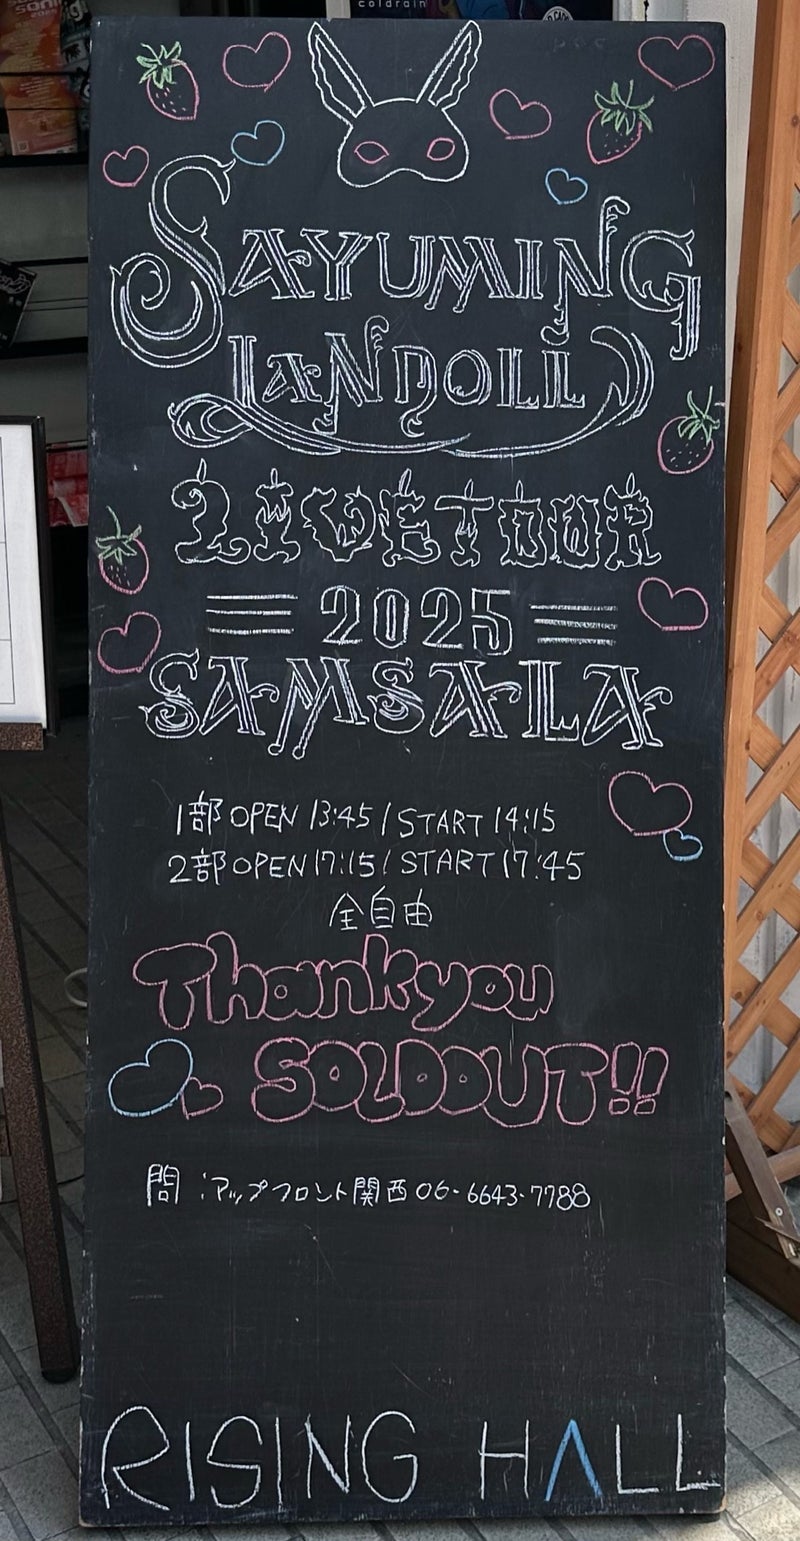 coldrain
SAYUMINGLANDOLL
LIVETOUR
2025
SAMSALA
1部 OPEN 13:45 / START 14:15
2部 OPEN 17:15 / START 17:45
全自由
Thankyou
SOLDOUT!!
問:アップフロント関西 06-6643-7788
RISING HALL